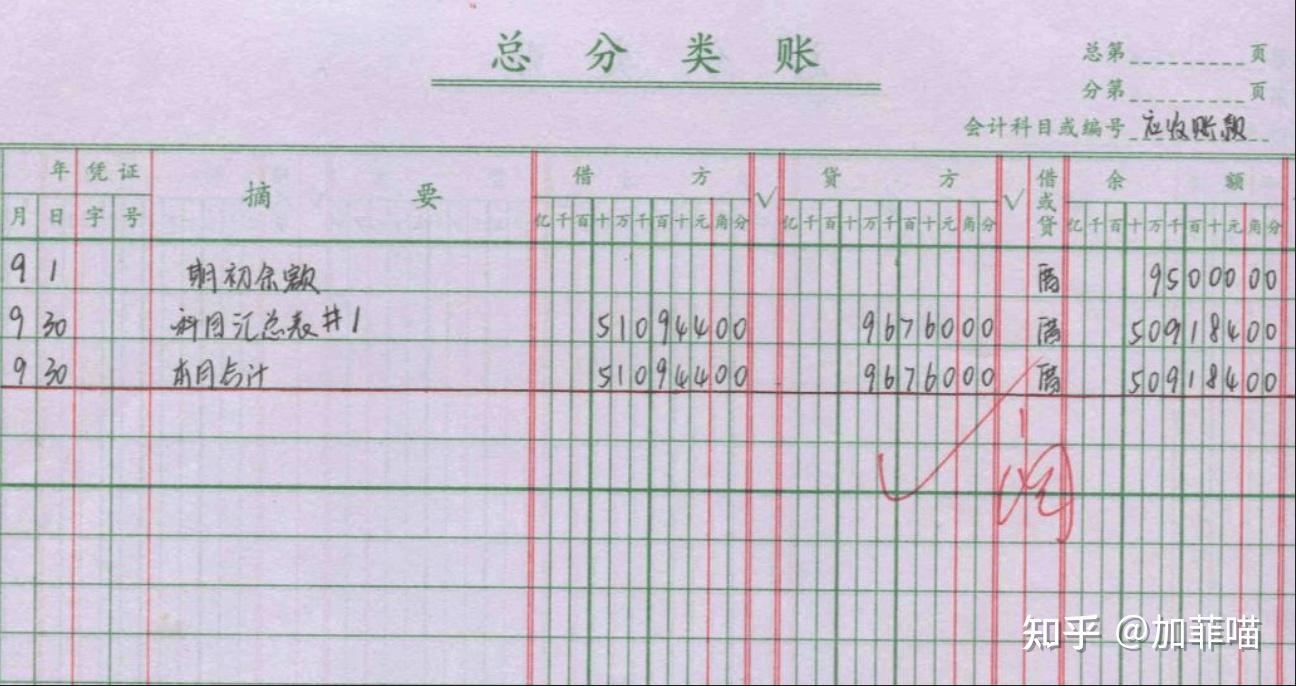 总分类账
总第 页
分第 页
会计科目或编号 应收账款
年 凭证 摘要 借方 √ 贷方 √ 借或贷 余额
月 日 字 号 亿千百十万千百十元角分 亿千百十万千百十元角分 亿千百十万千百十元角分
9 1 期初余额 借 9500000
9 30 科目汇总表#1 51094400 9676000 借 50918400
9 30 本月合计 51094400 9676000 借 50918400
知乎 @加菲喵